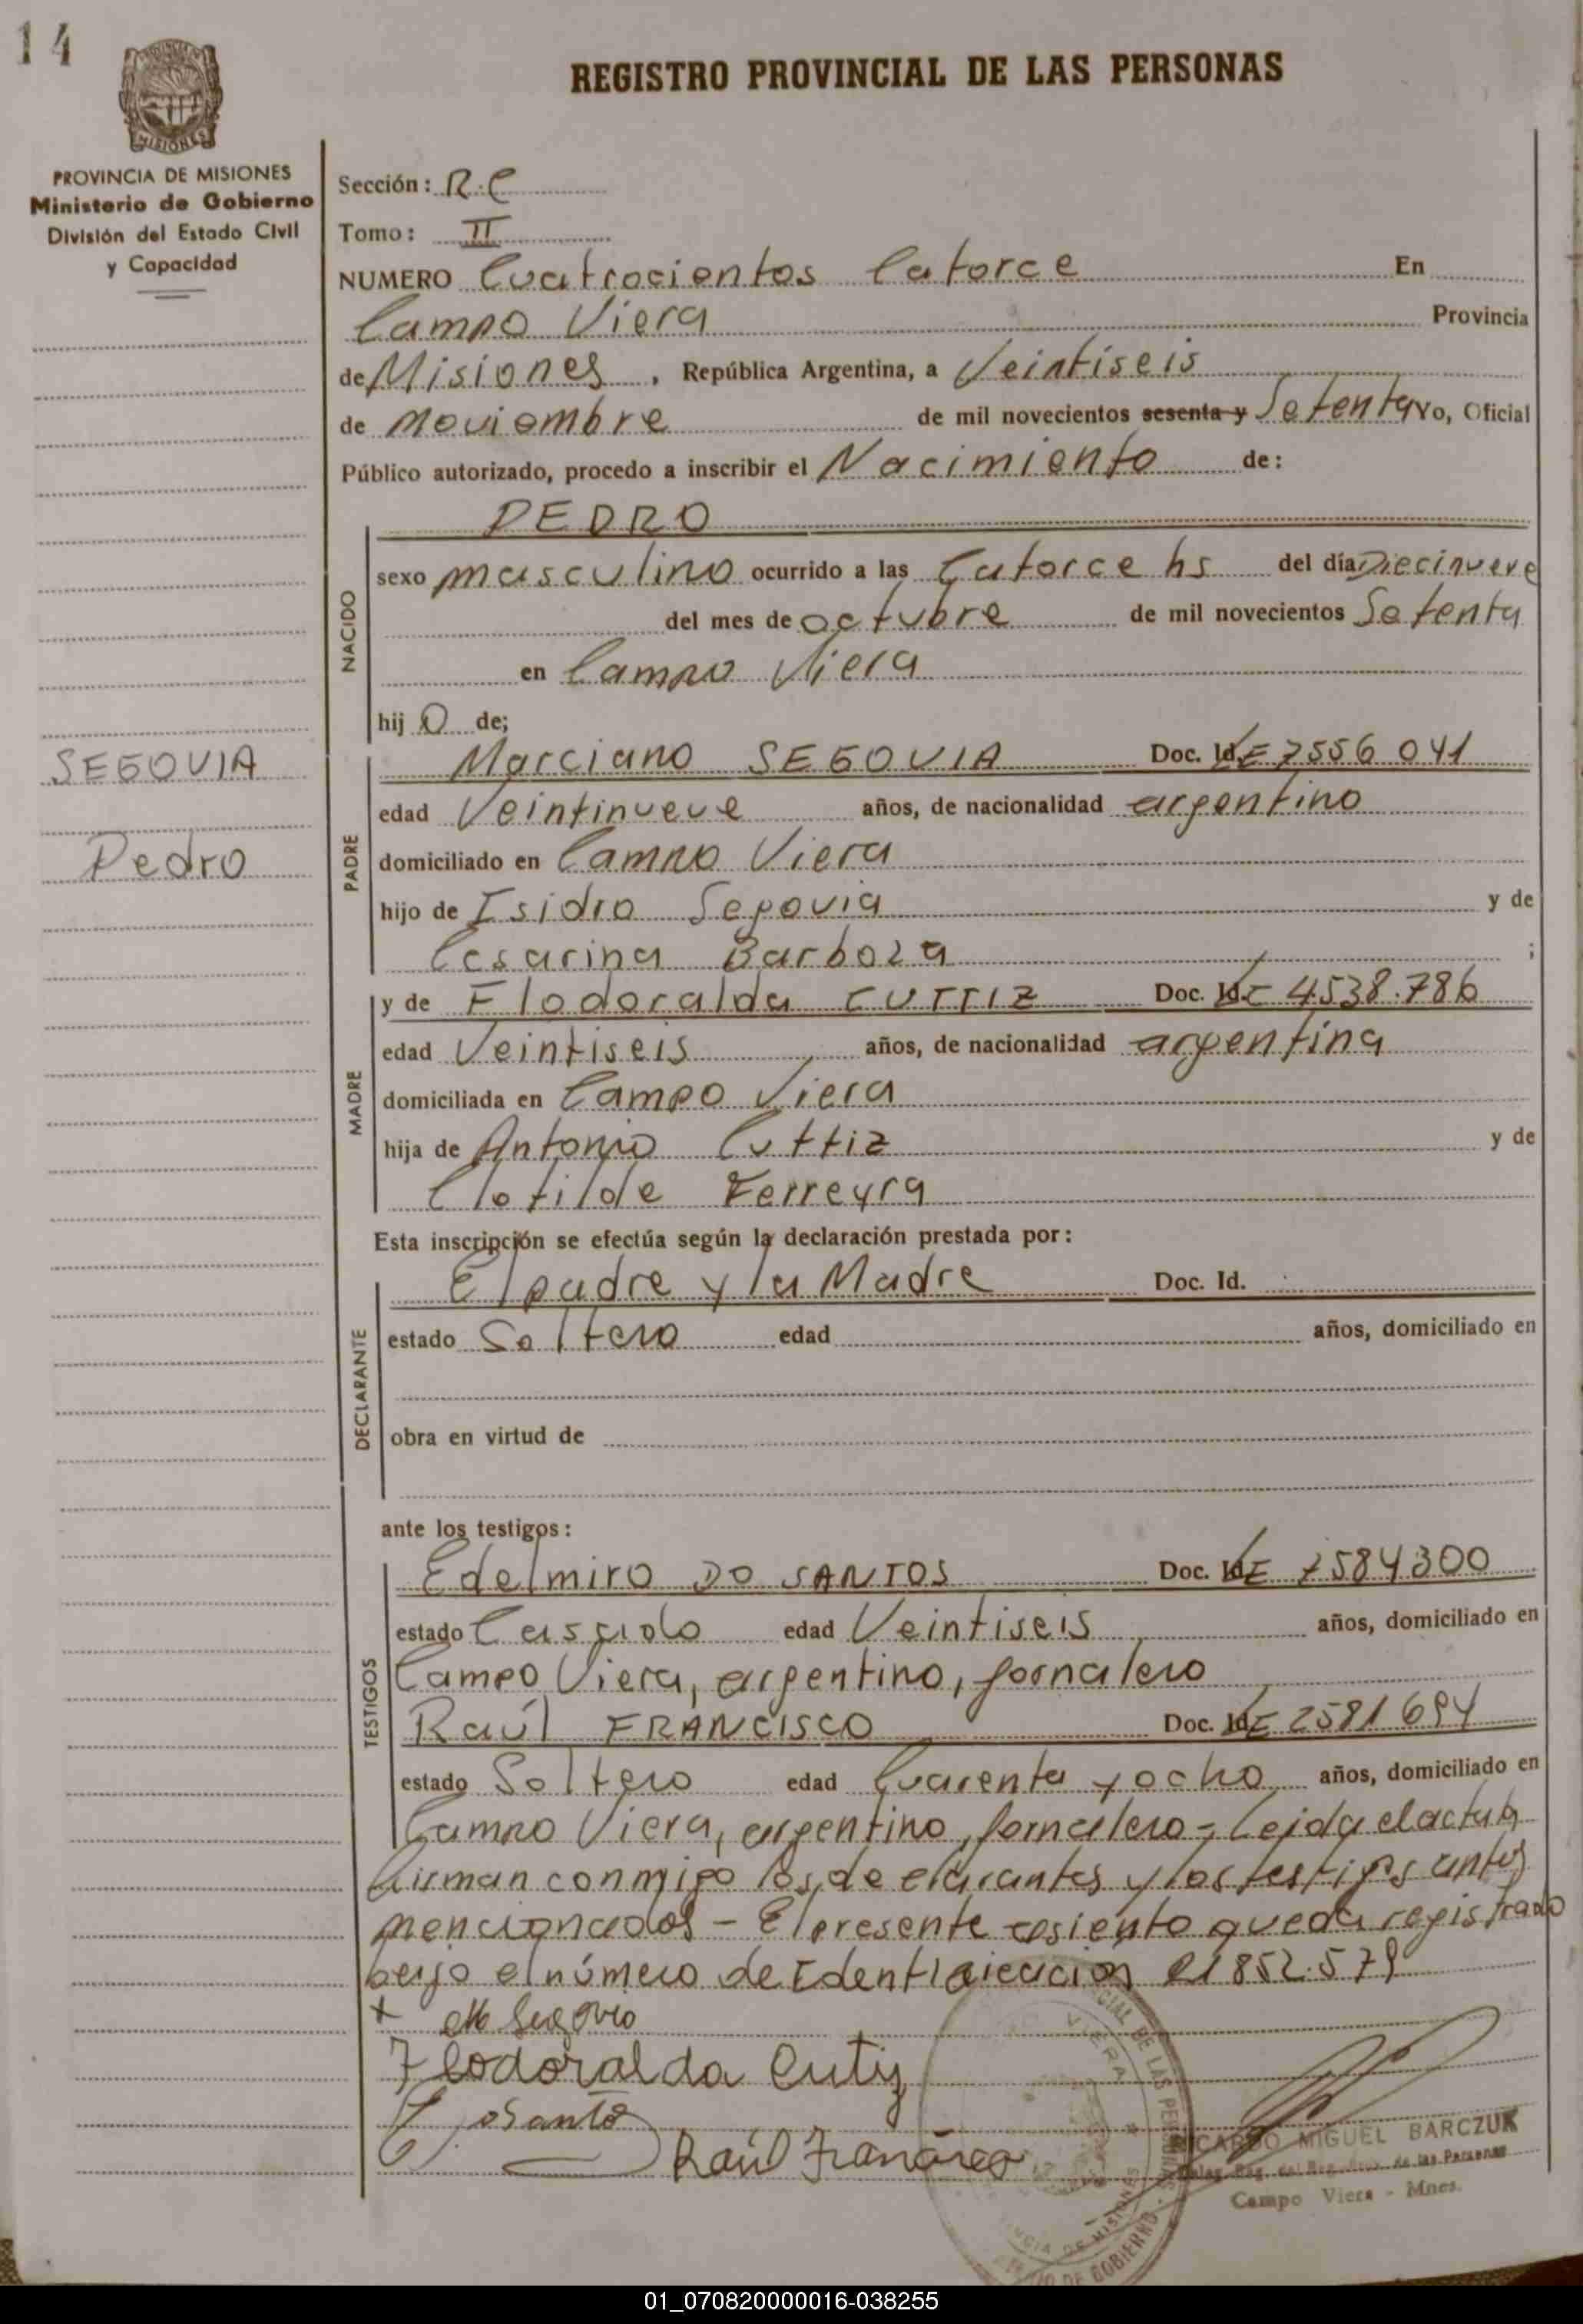 14
MISIONES
PROVINCIA DE MISIONES
Ministerio de Gobierno
División del Estado Civil
y Capacidad
REGISTRO PROVINCIAL DE LAS PERSONAS
Sección: R.C
Tomo: II
NUMERO Cuatrocientos Catorce En
Campo Viera Provincia
de Misiones, República Argentina, a Veintiseis
de noviembre de mil novecientos sesenta y Setenta Yo, Oficial
Público autorizado, procedo a inscribir el Nacimiento de:
NACIDO
PEDRO
sexo masculino ocurrido a las Catorce hs del día Diecinueve
del mes de octubre de mil novecientos Setenta
en Campo Viera
hij o de;
SEGOVIA
Pedro
PADRE
Marciano SEGOVIA Doc. Id. LE 7556 041
edad Veintinueve años, de nacionalidad argentino
domiciliado en Campo Viera
hijo de Isidro Segovia y de
Cesarina Barboza ;
MADRE
y de Flodoralda CUTTIZ Doc. Id. LC 4.538.786
edad Veintiseis años, de nacionalidad argentina
domiciliada en Campo Viera
hija de Antonio Cuttiz y de
Clotilde Ferreyra
Esta inscripción se efectúa según la declaración prestada por:
DECLARANTE
El padre y la Madre Doc. Id.
estado Soltero edad años, domiciliado en
obra en virtud de
ante los testigos:
TESTIGOS
Edelmiro DO SANTOS Doc. Id. LE 7584300
estado Casado edad Veintiseis años, domiciliado en
Campo Viera, argentino, jornalero
Raúl FRANCISCO Doc. Id. LE 2581694
estado Soltero edad Cuarenta y ocho años, domiciliado en
Campo Viera, argentino, jornalero - Leida el acta la
firman conmigo los declarantes y los testigos antes
mencionados - El presente asiento queda registrado
bajo el número de Identificación 21852.579
x M Segovia
Flodoralda Cutiz
E. do Santo
Raúl Francisco
RICARDO MIGUEL BARCZUK
de las Personas
Campo Viera - Mnes.
01_070820000016-038255